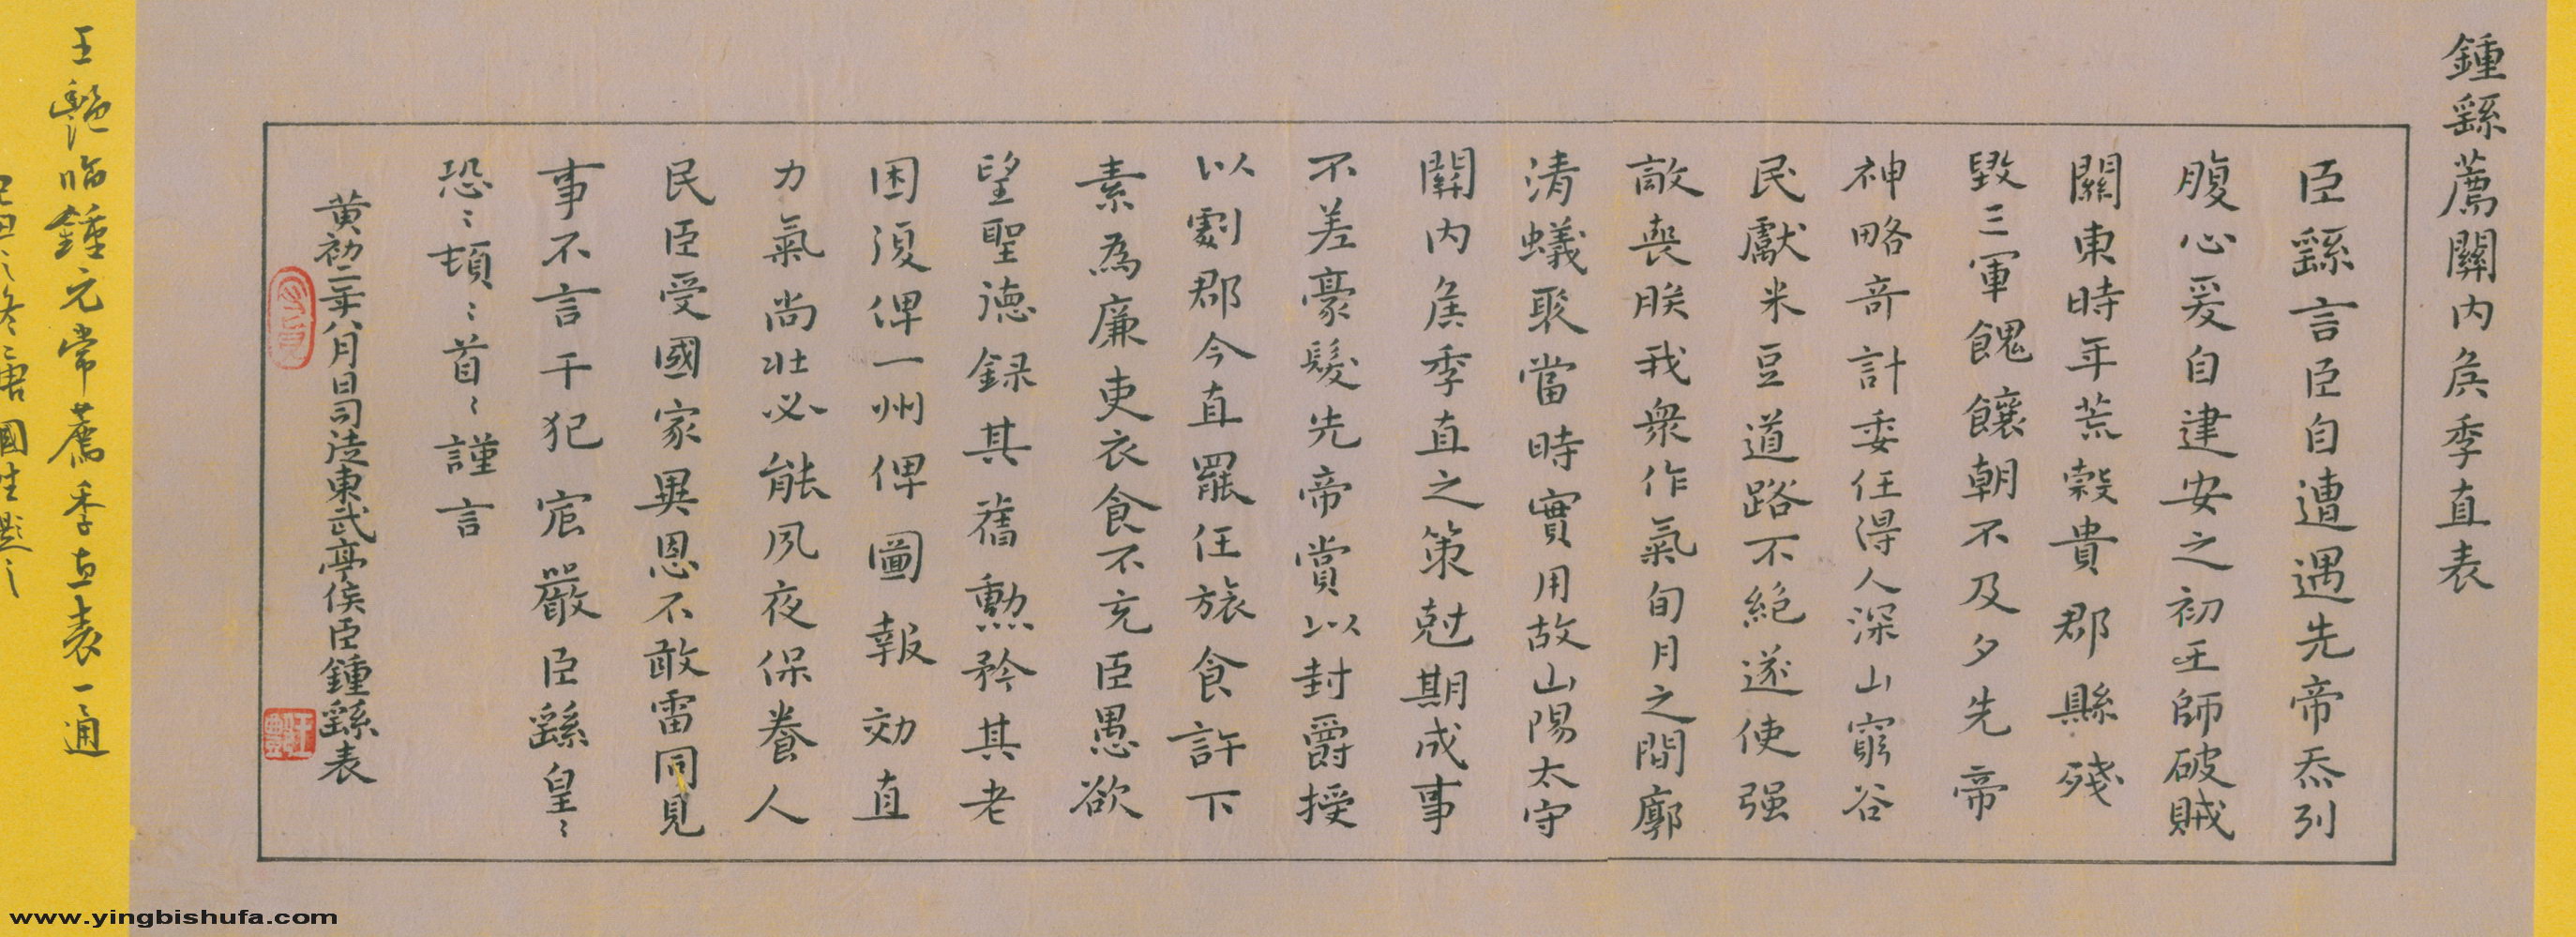 鍾繇薦關內侯季直表
臣繇言臣自遭遇先帝忝列
腹心爰自建安之初王師破賊
關東時年荒穀貴郡縣殘
毀三軍餽饟朝不及夕先帝
神略奇計委任得人深山窮谷
民獻米豆道路不絕遂使强
敵喪朕我衆作氣旬月之間廓
清蟻聚當時實用故山陽太守
關內侯季直之策尅期成事
不差豪髮先帝賞以封爵授
以劇郡今直罷任旅食許下
素為廉吏衣食不充臣愚欲
望聖德録其舊勲矜其老
困復俾一州俾圖報効直
力氣尚壯必能夙夜保養人
民臣受國家異恩不敢雷同見
事不言干犯宸嚴臣繇皇〻
恐〻頓〻首〻謹言
黃初二年八月日司徒東武亭侯臣鍾繇表
王艷臨鍾元常薦季直表一通
www.yingbishufa.com